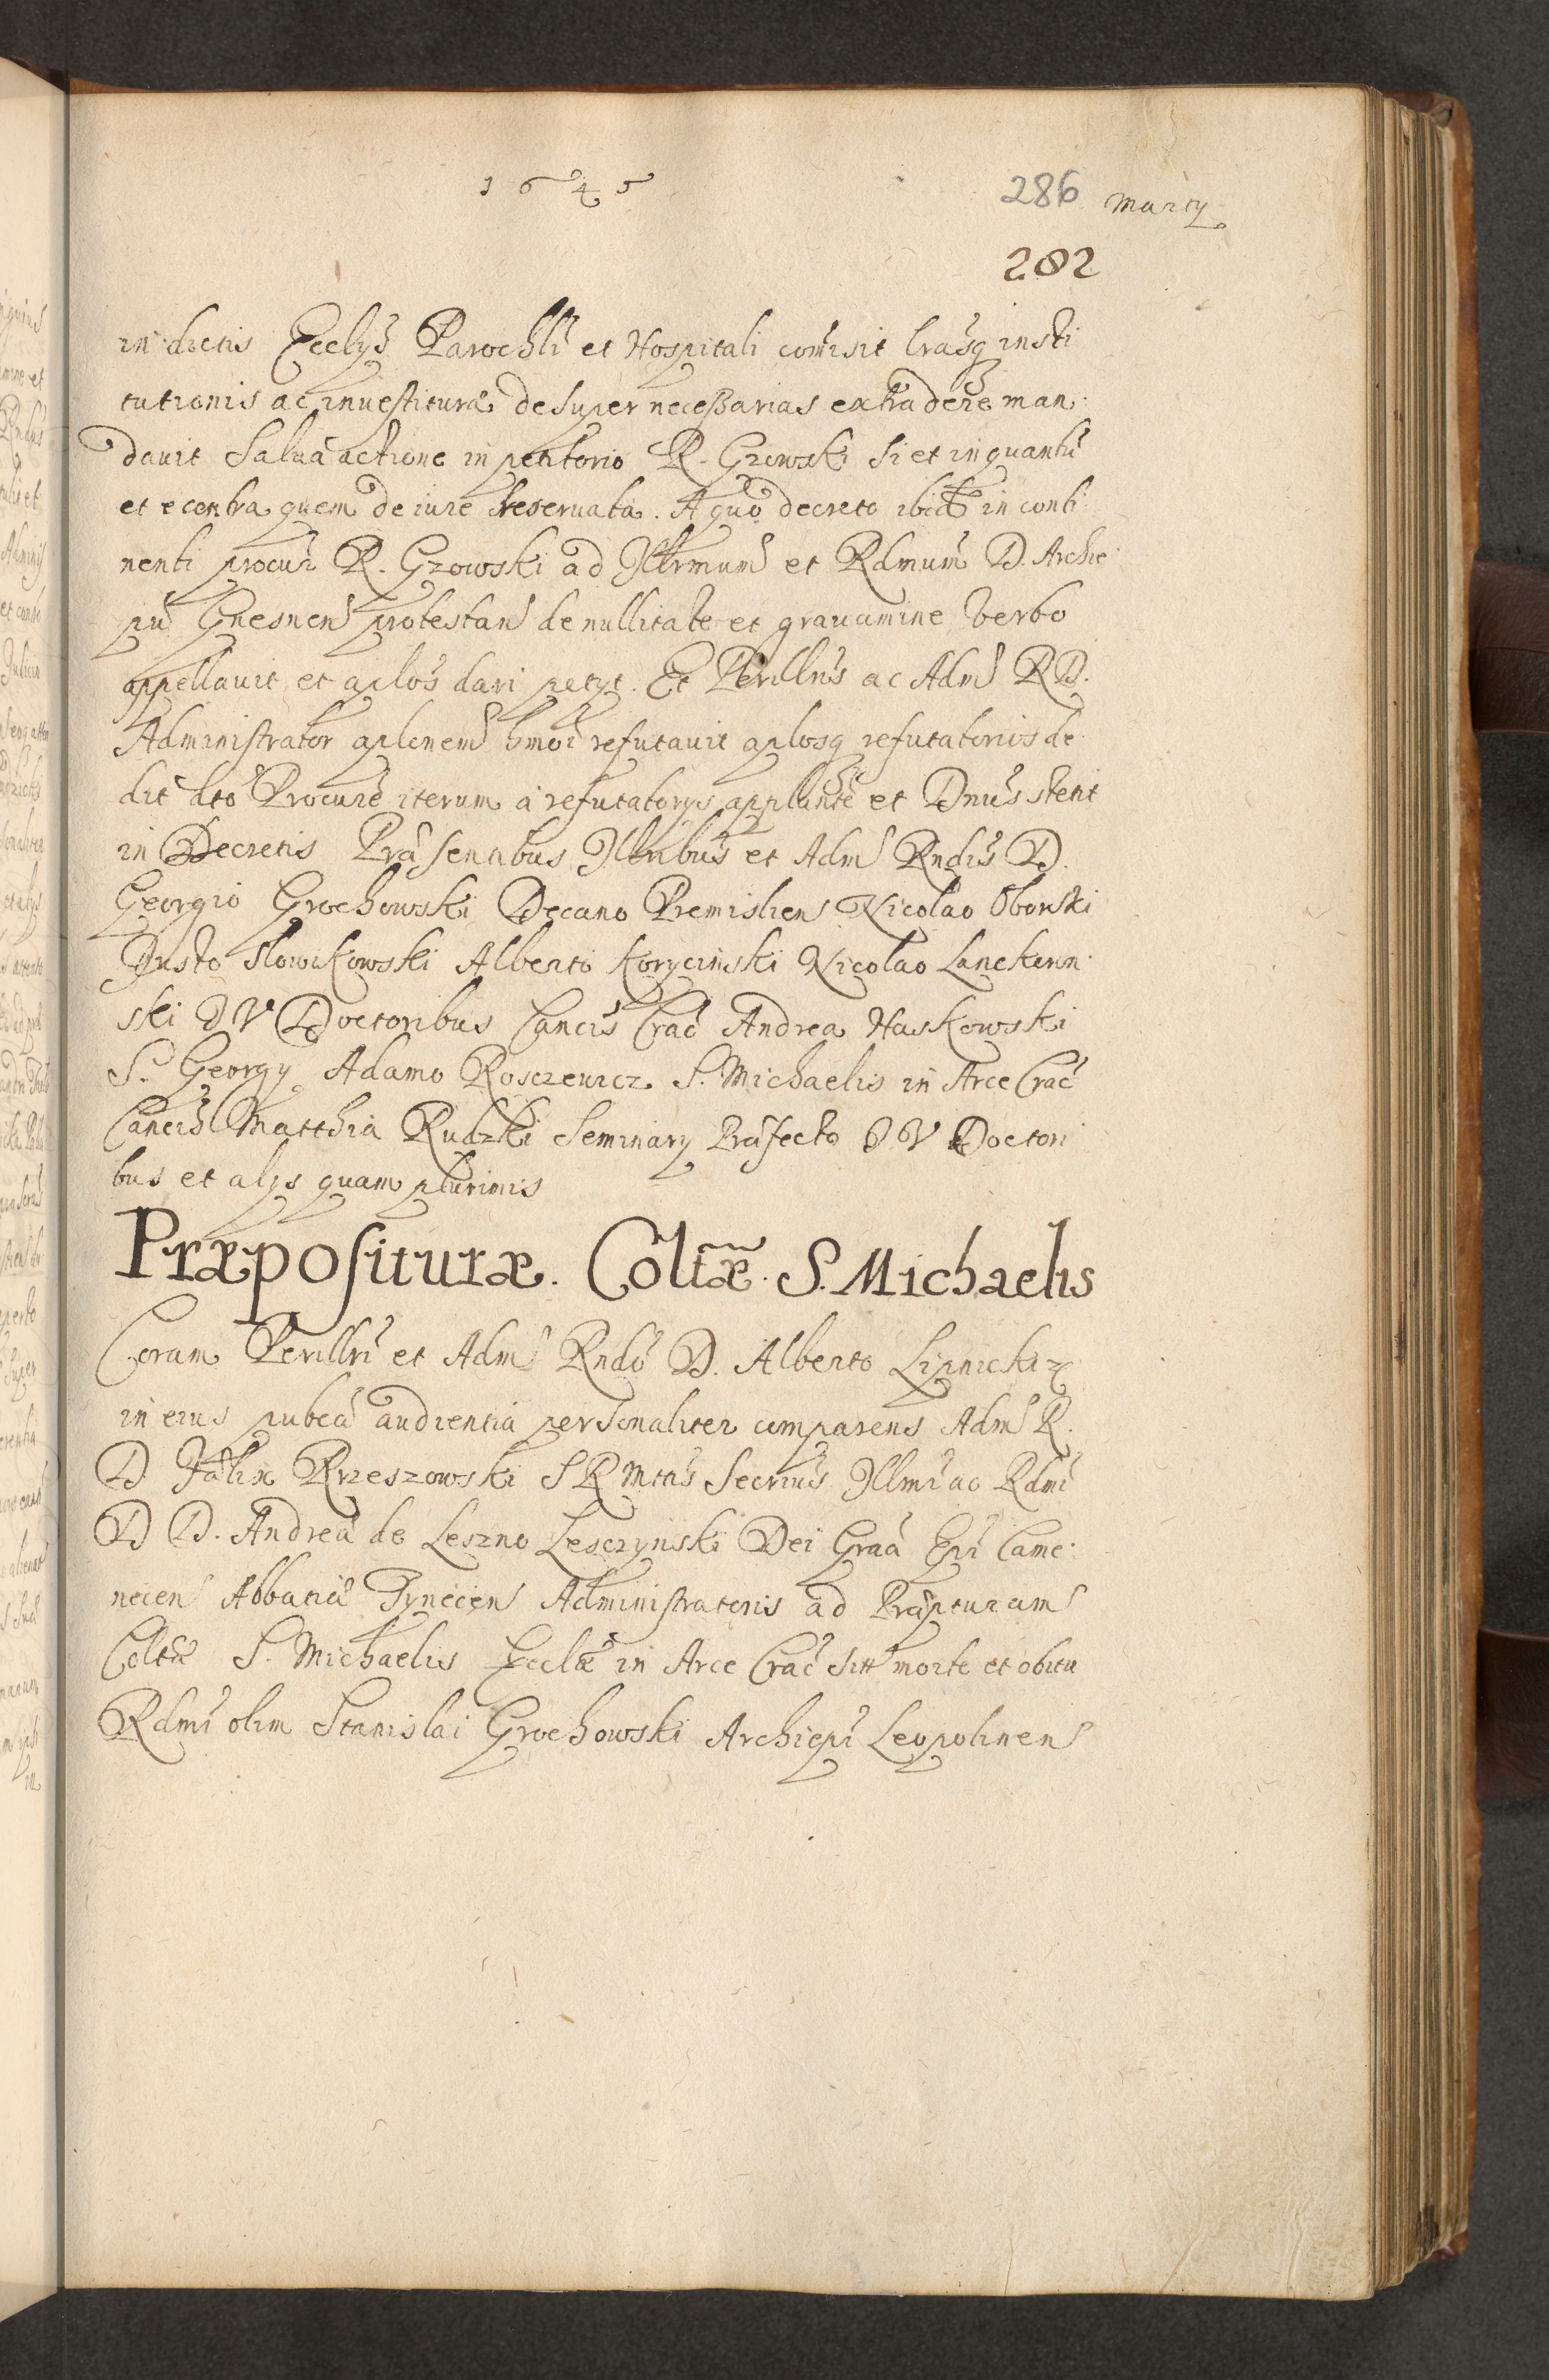 1645
286 Marty
282
in dictis Ecclijs Parochli et Hospitali comisit lrasq insti
tutionis ac inuestituræ desuper necessarias extradere man
dauit Salua actione in petitorio R. Gzowski si et in quantu
et e contra quem de iure reseruata. A quo decreto ibid in conti
nenti procur R. Gzowski ad Illrmum et Rdmum D. Archie
pu Gnesnen protestan de nullitate et grauamine verbo
appellauit et aplos dari petijt. Et Perillris ac Adm RD.
Administrator aplonem hmoi refutauit aplosq refutatorios de
dit dto Procure iterum a refutatorijs applante et Dnus stetit
in Decretis Præsentibus Illribus et Adm Rndis D.
Georgio Grochowski Decano Premislien Nicolao Oborski
Justo Slowikowski Alberto Korycinski Nicolao Lanckoron
ski J V Doctoribus Cancis Crac Andrea Haskowski
S. Georgij Adamo Rosczewicz S. Michaelis in Arce Crac
Cancis Matthia Rudzki Seminarij Præfecto J V Doctori
bus et alijs quam plurimis
Præpositurae. Coltæ. S. Michaelis
Coram Perillri et Adm Rndo D. Alberto Lipnicki
in eius pubca audientia personaliter comparens Adm R.
D Fælix Rzeszowski S R Mtis Secrius Illmi ac Rdmi
D D. Andreæ de Leszno Lesczynski Dei Graa Epi Came
necen Abbatiæ Tynecen Administratoris ad Præpturam
Coltæ S. Michaelis Ecclæ in Arce Crac sitt morte et obitu
Rdmi olim Stanislai Grochowski Archiepi Leopolinen